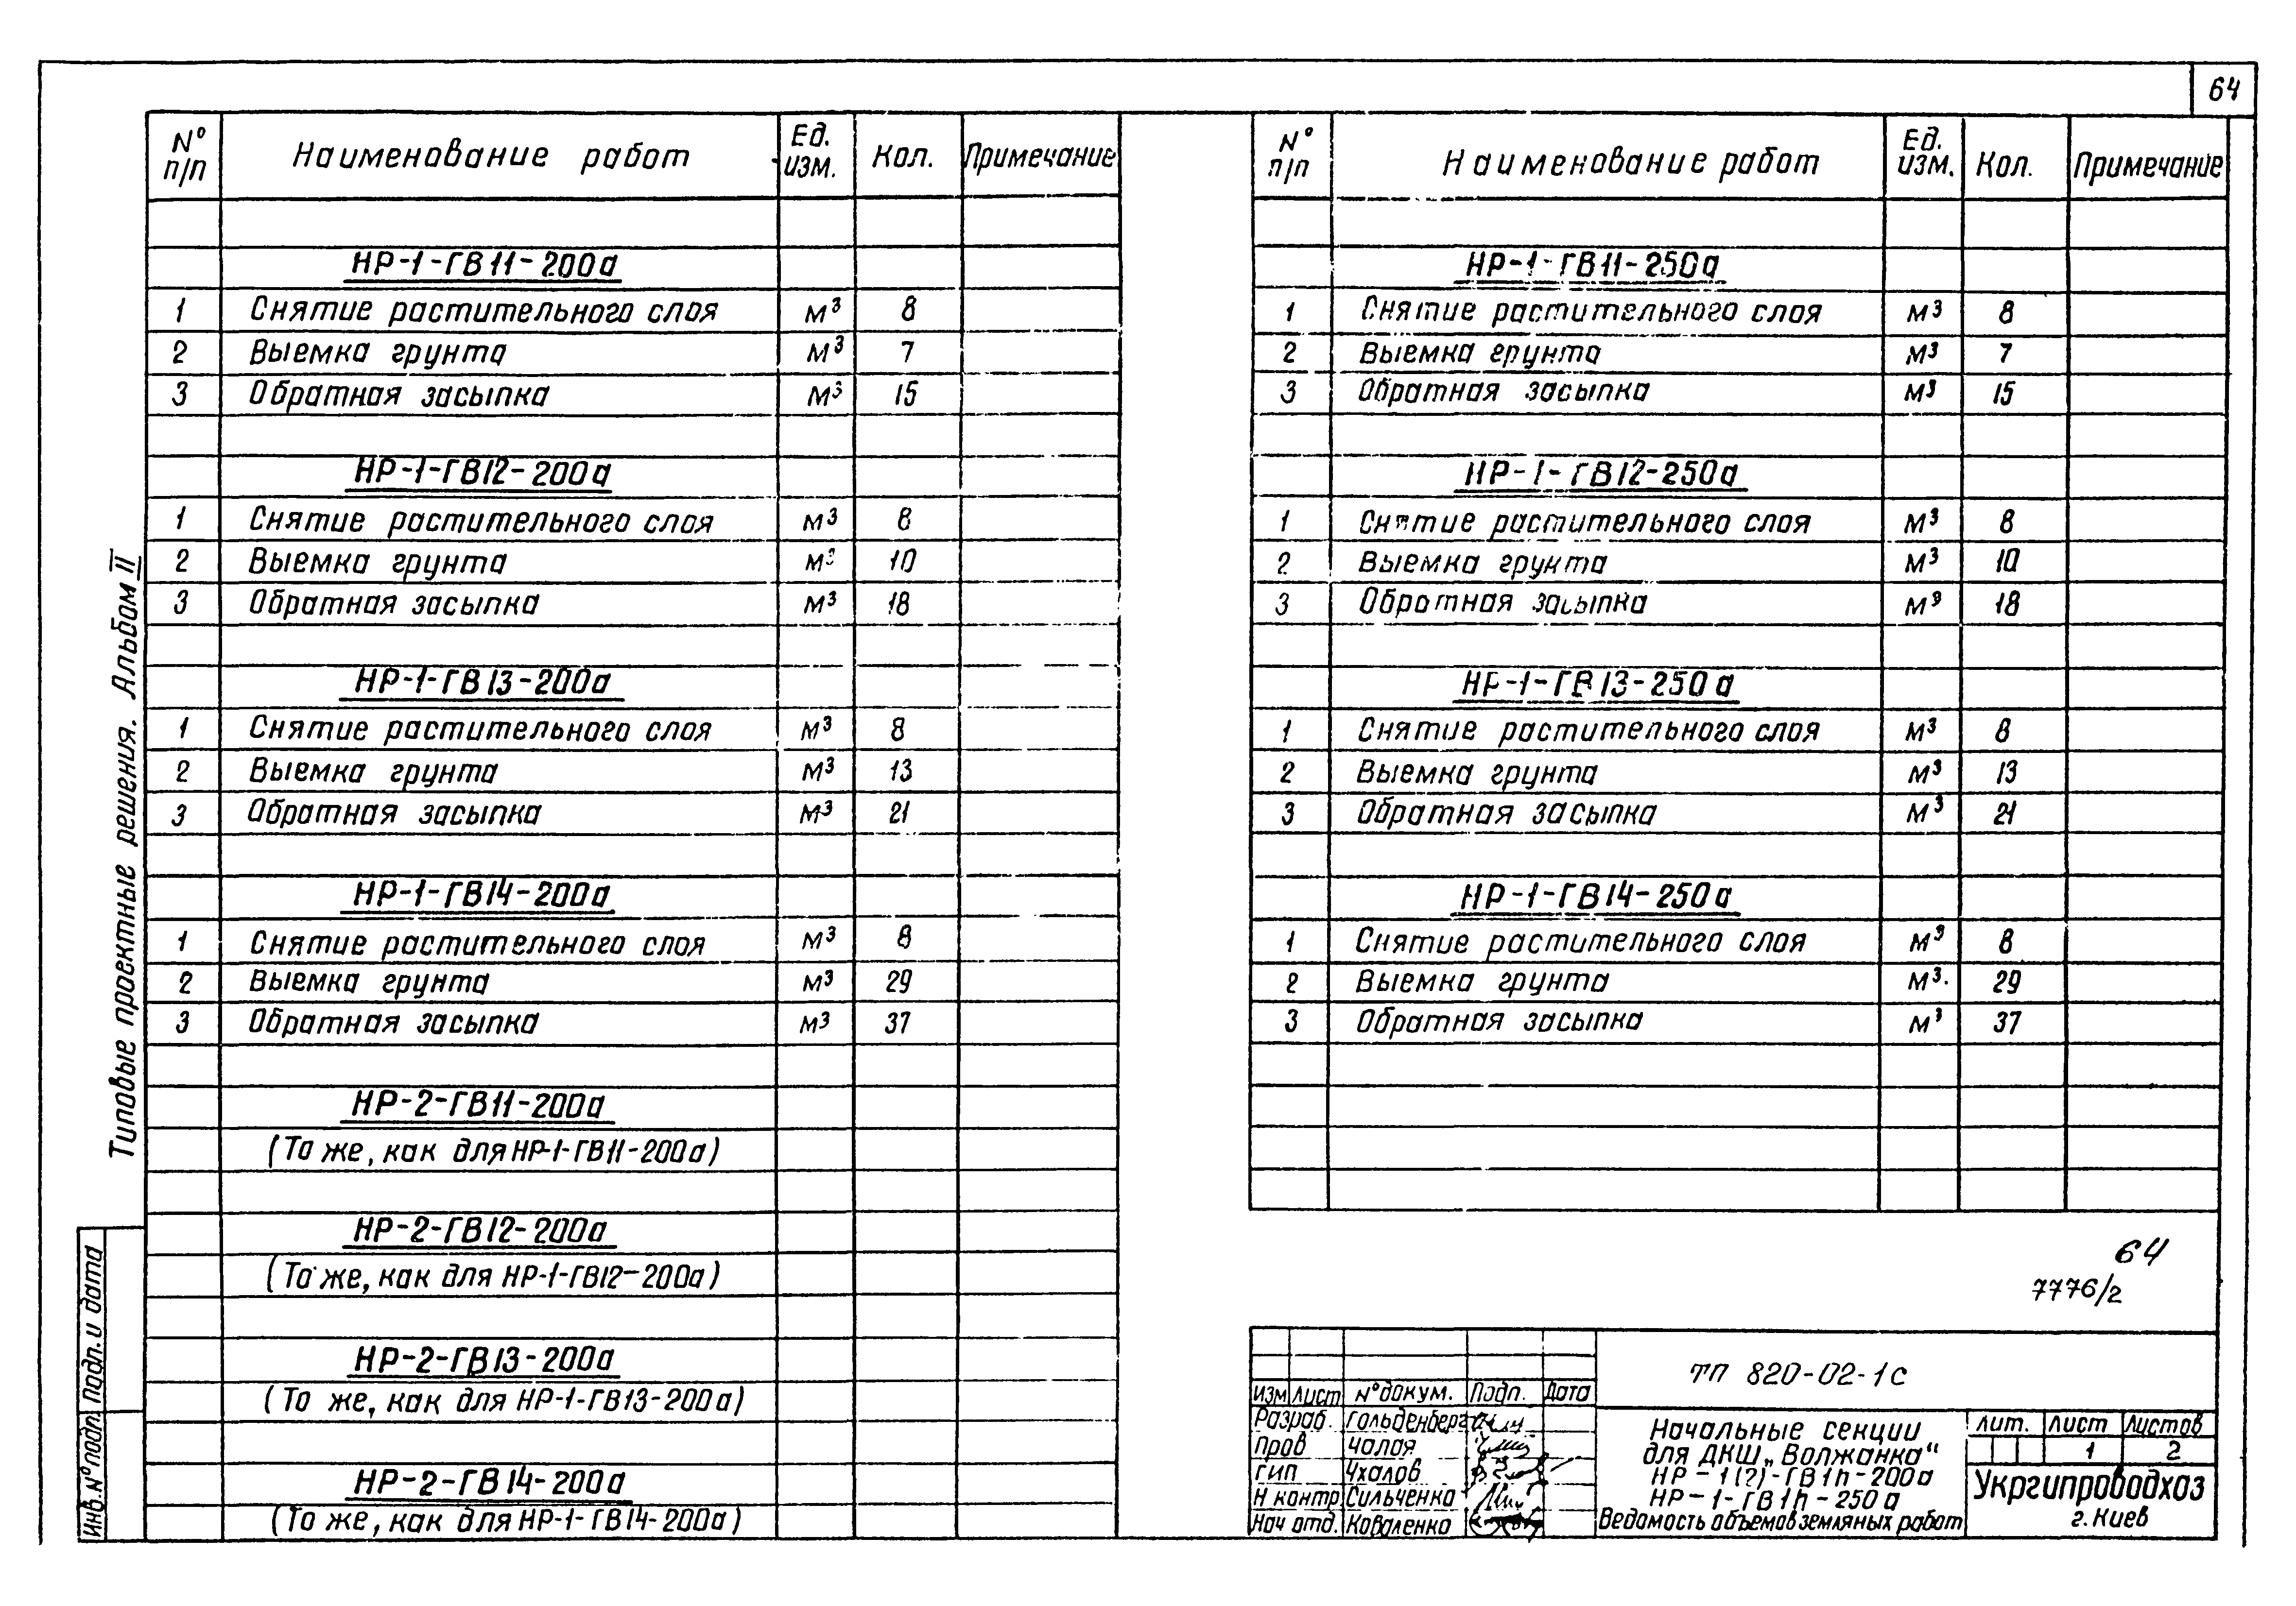 64
Типовые проектные решения. Альбом II
Инв. № подл. Подп. и дата
№ п/п Наименование работ Ед. изм. Кол. Примечание
НР-1-ГВ11-200а
1 Снятие растительного слоя м³ 8
2 Выемка грунта м³ 7
3 Обратная засыпка м³ 15
НР-1-ГВ12-200а
1 Снятие растительного слоя м³ 8
2 Выемка грунта м³ 10
3 Обратная засыпка м³ 18
НР-1-ГВ13-200а
1 Снятие растительного слоя м³ 8
2 Выемка грунта м³ 13
3 Обратная засыпка м³ 21
НР-1-ГВ14-200а
1 Снятие растительного слоя м³ 8
2 Выемка грунта м³ 29
3 Обратная засыпка м³ 37
НР-2-ГВ11-200а
(То же, как для НР-1-ГВ11-200а)
НР-2-ГВ12-200а
(То же, как для НР-1-ГВ12-200а)
НР-2-ГВ13-200а
(То же, как для НР-1-ГВ13-200а)
НР-2-ГВ14-200а
(То же, как для НР-1-ГВ14-200а)
№ п/п Наименование работ Ед. изм. Кол. Примечание
НР-1-ГВ11-250а
1 Снятие растительного слоя м³ 8
2 Выемка грунта м³ 7
3 Обратная засыпка м³ 15
НР-1-ГВ12-250а
1 Снятие растительного слоя м³ 8
2 Выемка грунта м³ 10
3 Обратная засыпка м³ 18
НР-1-ГВ13-250а
1 Снятие растительного слоя м³ 8
2 Выемка грунта м³ 13
3 Обратная засыпка м³ 21
НР-1-ГВ14-250а
1 Снятие растительного слоя м³ 8
2 Выемка грунта м³ 29
3 Обратная засыпка м³ 37
64
7776/2
Изм Лист № докум. Подп. Дата
Разраб. Гольденберг
Пров Чалая
ГИП Чхалов
Н контр Сильченко
Нач отд. Коваленко
ТП 820-02-1с
Начальные секции
для ДКШ „Волжанка"
НР-1(2)-ГВ1h-200а
НР-1-ГВ1h-250а
Ведомость объемов земляных работ
Лит. Лист Листов
1 2
Укргипроводхоз
г. Киев